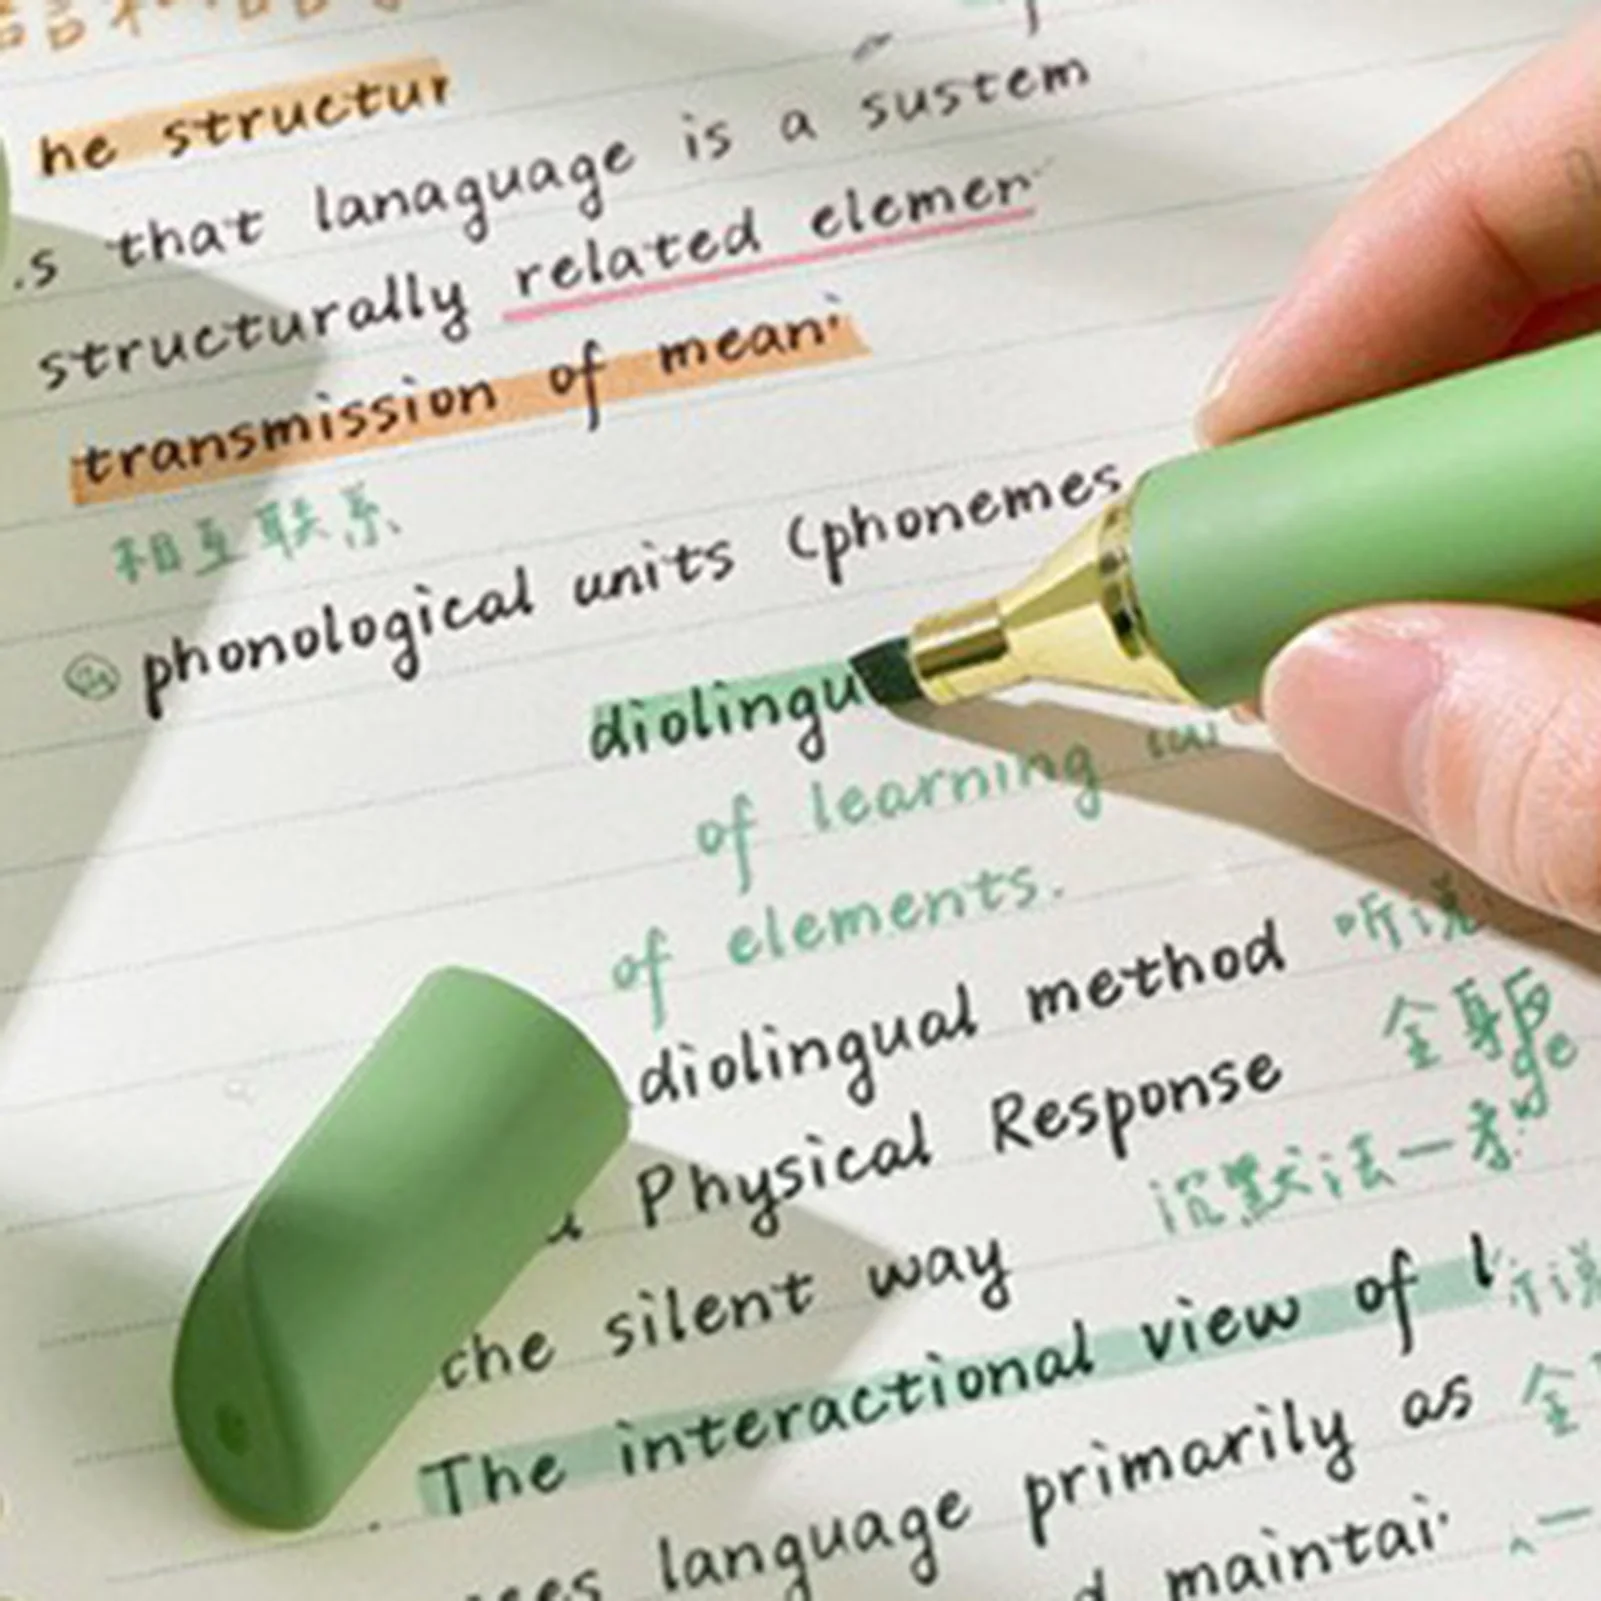 he structur
s that lanaguage is a sustem
structurally related elemen
transmission of mean
相互联系
phonological units (phonemes
diolingu
of learning
of elements.
diolingual method 听说
Physical Response 全身
the silent way 沉默法一
The interactional view of l
language primarily as 全
maintai